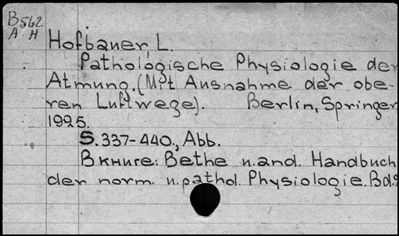 B562
A H
Hofbauer, L.
Pathologische Physiologie der
Atmung. (Mit Ausnahme der obe-
ren Luftwege). Berlin, Springer
1925.
S. 337-440., Abb.
В книге: Bethe u. and. Handbuch
der norm. u. pathol. Physiologie. Bd.2